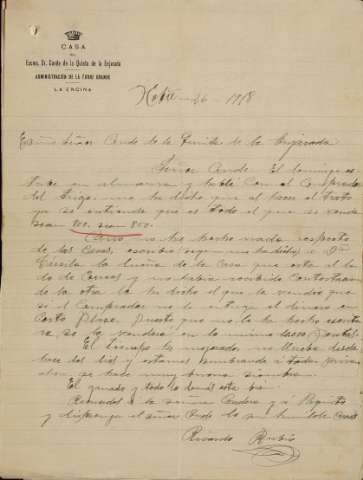 CASA
DEL
Excmo. Sr. Conde de la Quinta de la Enjarada
ADMINISTRACIÓN DE LA TORRE GRANDE
LA ENCINA
26 1918
Señor Conde de la Quinta de la Enjarada
Señor Conde El domingo es
tuve en almansa y hable con el Comprador
del trigo, me ha dicho que al hacer el trato
ya se entiende que es todo el que se vende
sean 800, sean 850.
no he hecho nada respecto
de las Casas,
la de la Casa que está al la
do de y había recibido Contestación
de la otra la ha dicho el que la vendió que
si el Comprador no le entrega el dinero en
Corto Plazo, puesto que no le ha hecho escritu
ra se la vendera en la misma
El tiempo ha mejorado, no llueve desde
hace dos dias y estamos sembrando a toda prisa
se hace muy buena siembra.
El ganado y todo lo demás esta bien
Recuerdos a la señora Condesa y a Paquito
y disponga el señor Conde de su humilde criado
Ricardo Rubio